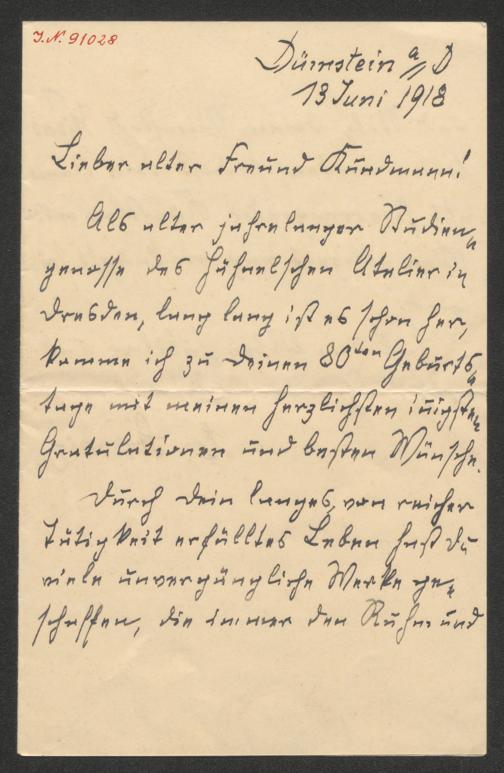 J.N. 91028
Dürnstein a/D
13 Juni 1918
Lieber alter Freund Kundmann!
Als alter jahrelanger Studien-
genosse des Hähnelschen Atelier in
Dresden, lang lang ist es schon her,
komme ich zu Deinen 80ten Geburts-
tage mit meinen herzlichsten innigsten
Gratulationen und besten Wünsche.
Durch Dein langes, von reicher
Tätigkeit erfülltes Leben hast Du
viele unvergängliche Werke ge-
schaffen, die immer den Ruhm und